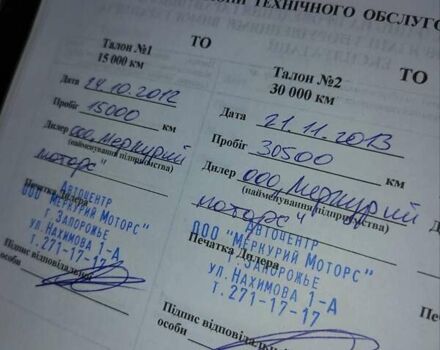 ТЕХНІЧНОГО ОБСЛУГО
Талон №1 ТО
15 000 км
Дата 24.10.2012
Пробіг 15000 км
Дилер ООО „Меркурий
(найменування підприємства)
Моторс"
Печатка Дилера
АВТОЦЕНТР
ООО "МЕРКУРИЙ МОТОРС"
г. ЗАПОРОЖЬЕ
УЛ.НАХИМОВА 1-А
т.271-17-17
Підпис відповідальної
особи
Талон №2 ТО
30 000 км
Дата 21.11.2013
Пробіг 30500 км
Дилер ООО „Меркурий
(найменування підприємства)
Моторс"
Печатка Дилера
АВТОЦЕНТР
ООО "МЕРКУРИЙ МОТОРС"
г. ЗАПОРОЖЬЕ
УЛ.НАХИМОВА 1-А
т.271-17-17
Підпис відповідальної
особи
Дата
Про
Дил
Печ
Під